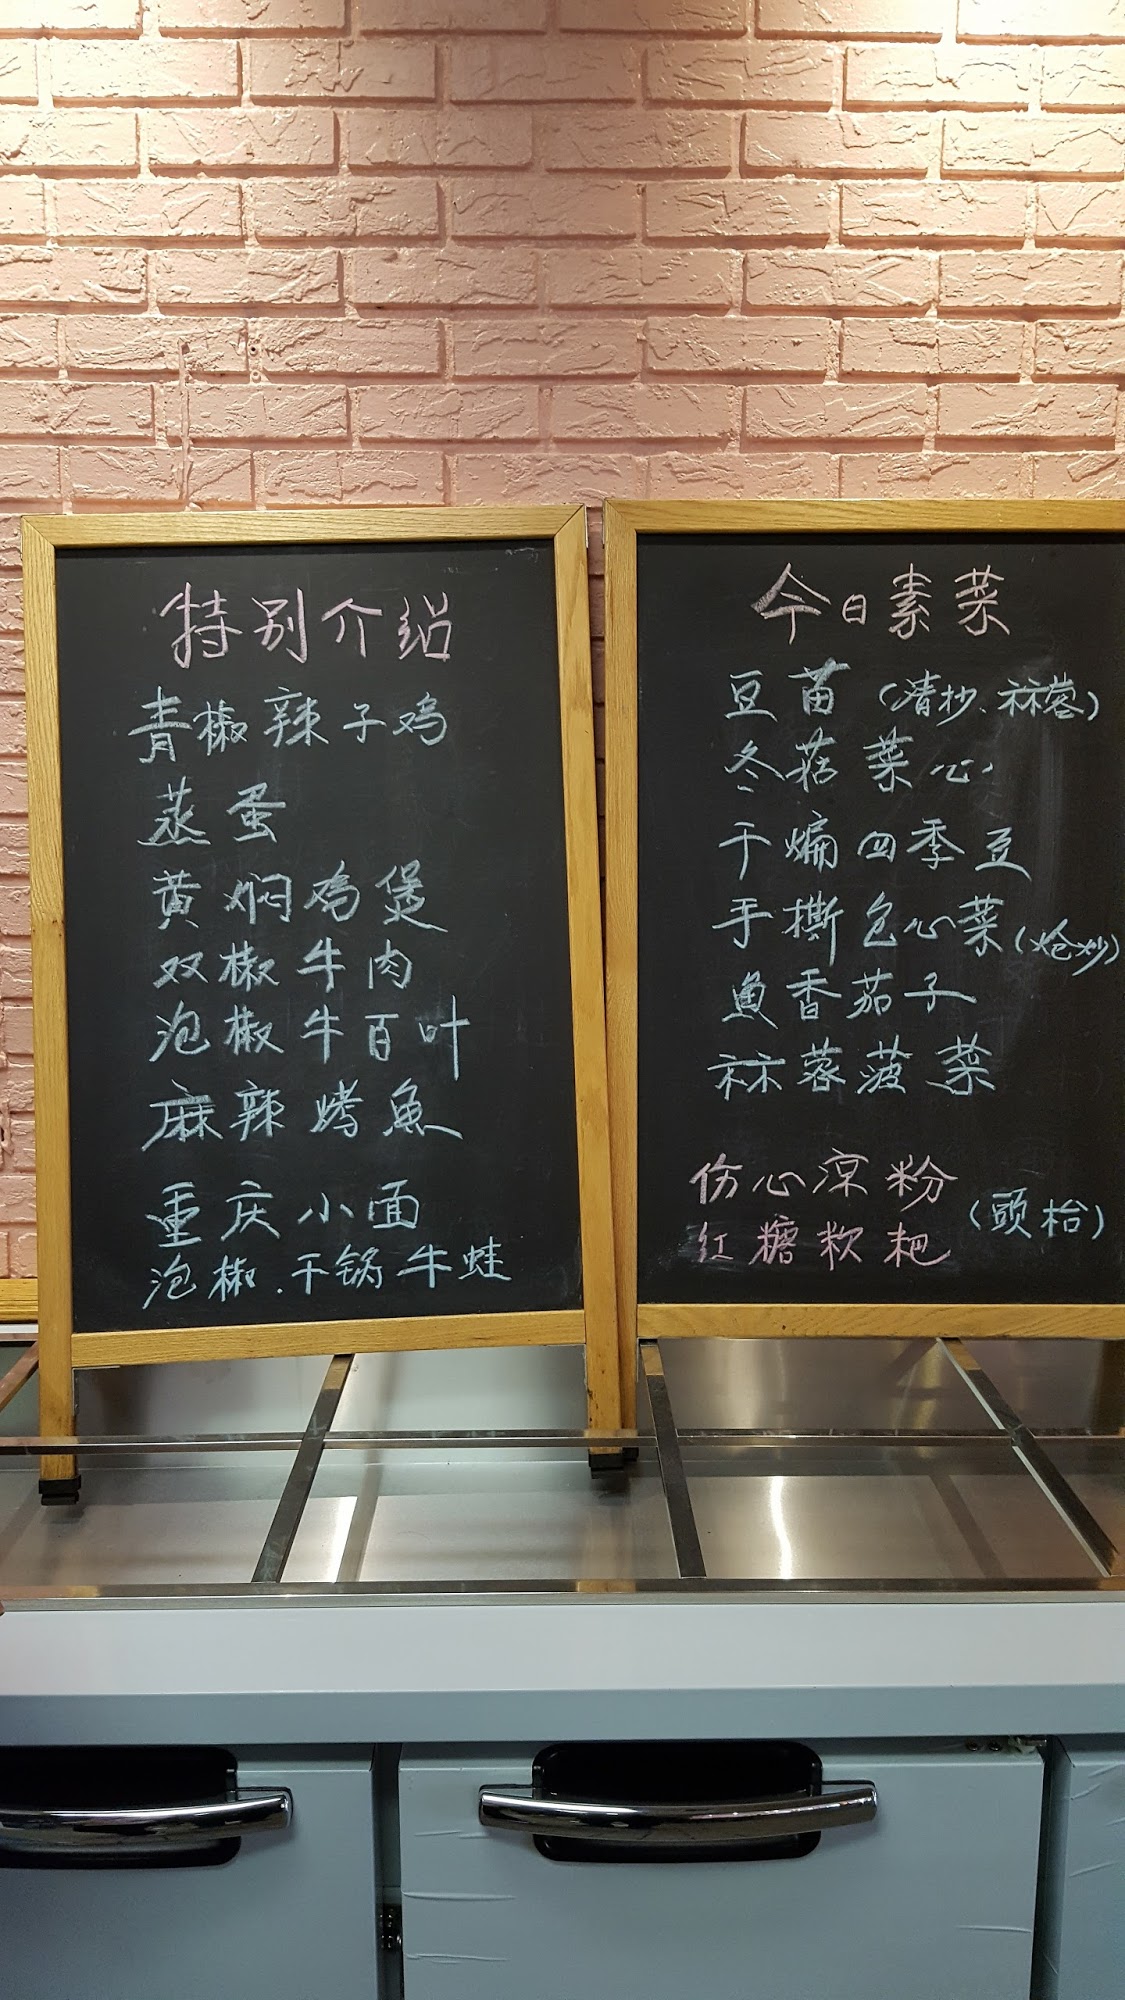 特别介绍
青椒辣子鸡
蒸蛋
黄焖鸡煲
双椒牛肉
泡椒牛百叶
麻辣烤魚
重庆小面
泡椒.干锅牛蛙
今日素菜
豆苗(清炒、蒜蓉)
冬菇菜心
干煸四季豆
手撕包心菜(炝炒)
魚香茄子
蒜蓉菠菜
伤心凉粉
红糖软粑
(頭枱)